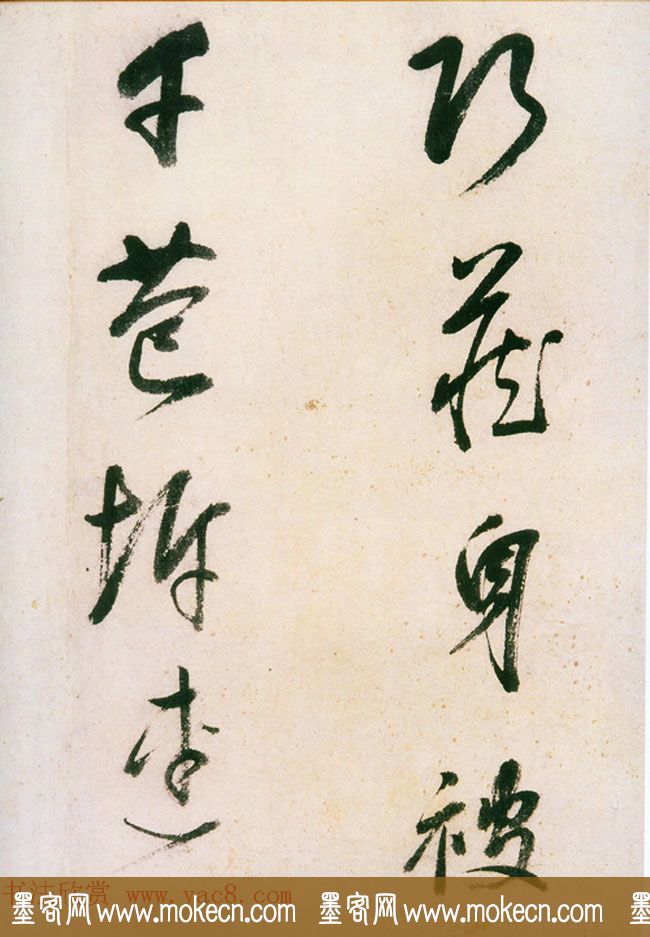 藏身被
苞坼連
书法欣赏 www.yac8.com
墨客网 www.mokecn.com 墨客网 www.mokecn.com